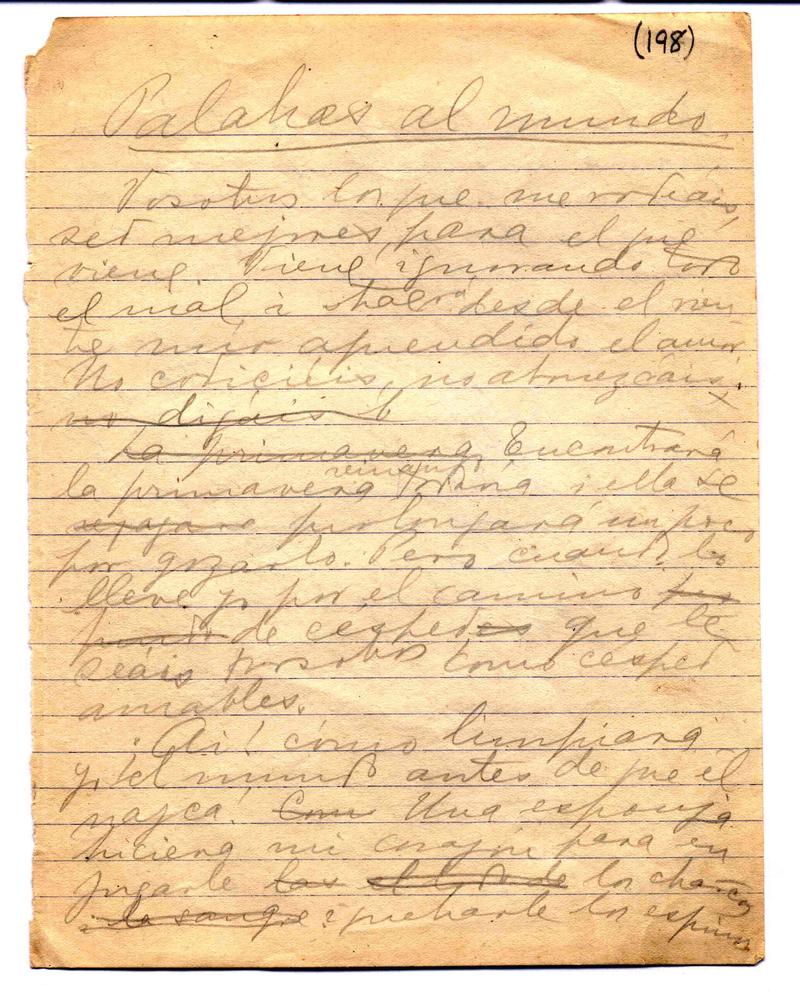 (198)
Palabras al mundo.
Vosotros los que me rodeáis,
sed mejores para el que
viene. Viene ignorando todo
el mal, i desde el vien
tre mío aprendido el amor.
No codiciéis, no aborrezcáis.
no digáis
La primavera Encontrará
la primavera reinando i ella se
prolongará un poco
por gozarlo. Pero cuando lo
lleve yo por el camino por
de céspedes que le
seáis vosotros como césped
amables.
¡Ai! cómo limpiara
yo el mundo antes de que él
nazca! Con Una esponja
hiciera mi corazón para en
jugarle las el lodo de los charcos
i la sangre i quebrarle los espinos